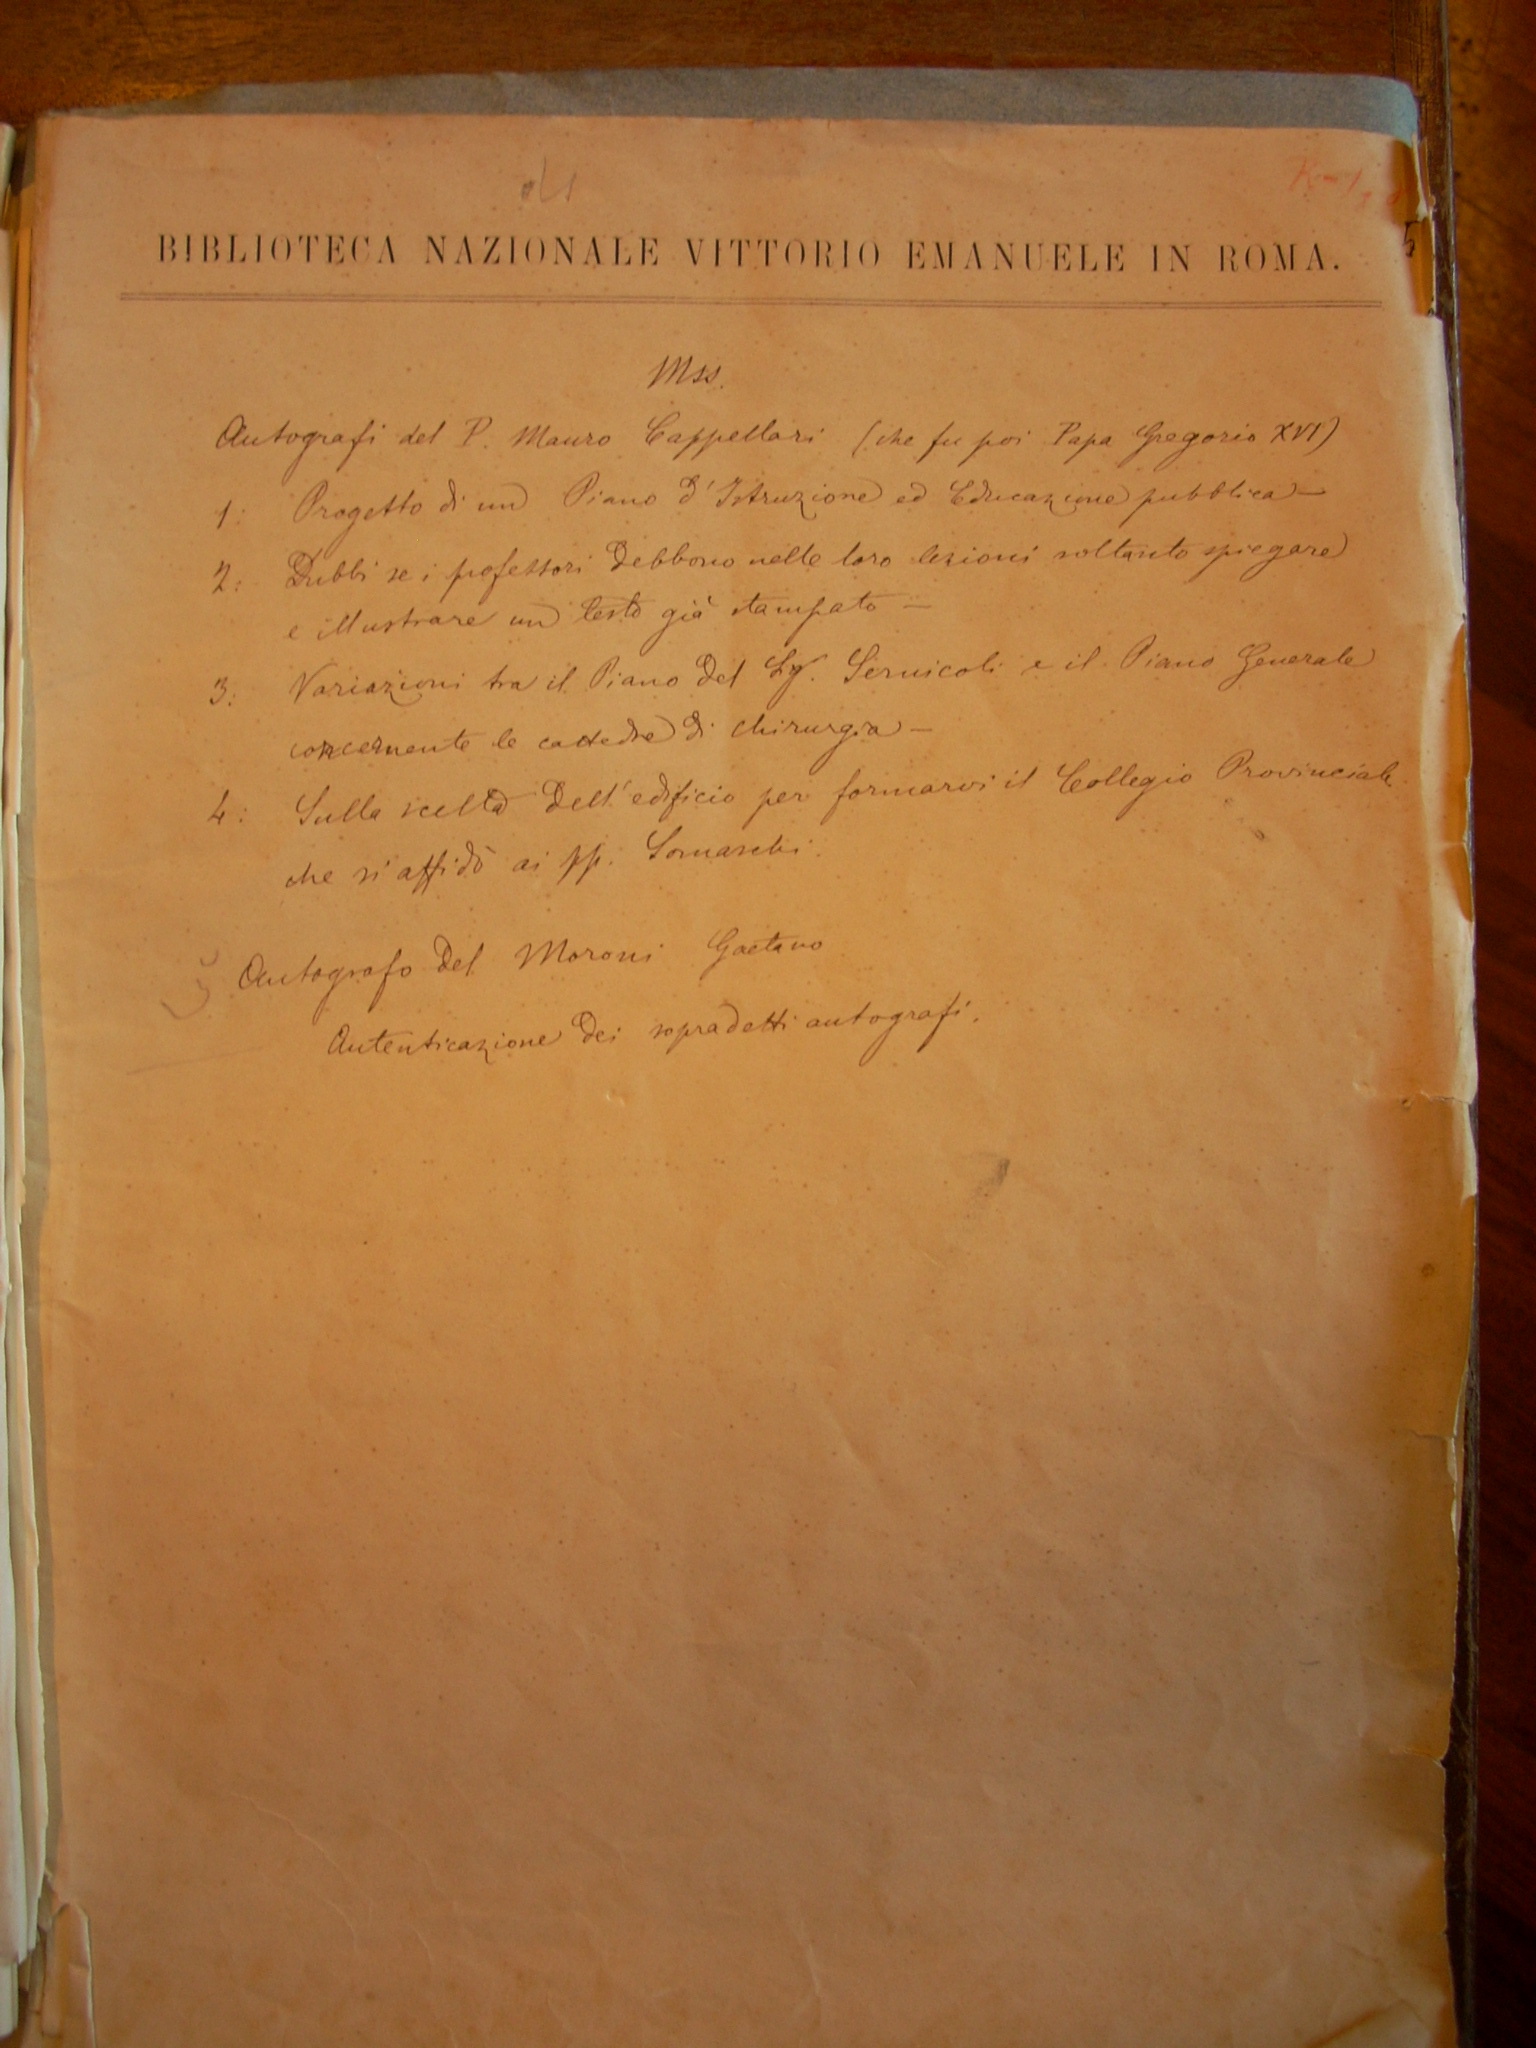 BIBLIOTECA NAZIONALE VITTORIO EMANUELE IN ROMA.
Mss.
Autografi del P. Mauro Cappellari (che fu poi Papa Gregorio XVI)
1: Progetto di un Piano d'Istruzione ed Educazione pubblica —
2: Dubbi se i professori debbono nelle loro lezioni soltanto spiegare
e illustrare un testo già stampato —
3: Variazioni tra il Piano del Sig. Sernicoli e il Piano Generale
concernente le cattedre di chirurgia —
4: Sulla scelta dell'edificio per formarvi il Collegio Provinciale
che si affidò ai pp. Somaschi.
Autografo del Moroni Gaetano
Autenticazione dei sopradetti autografi.